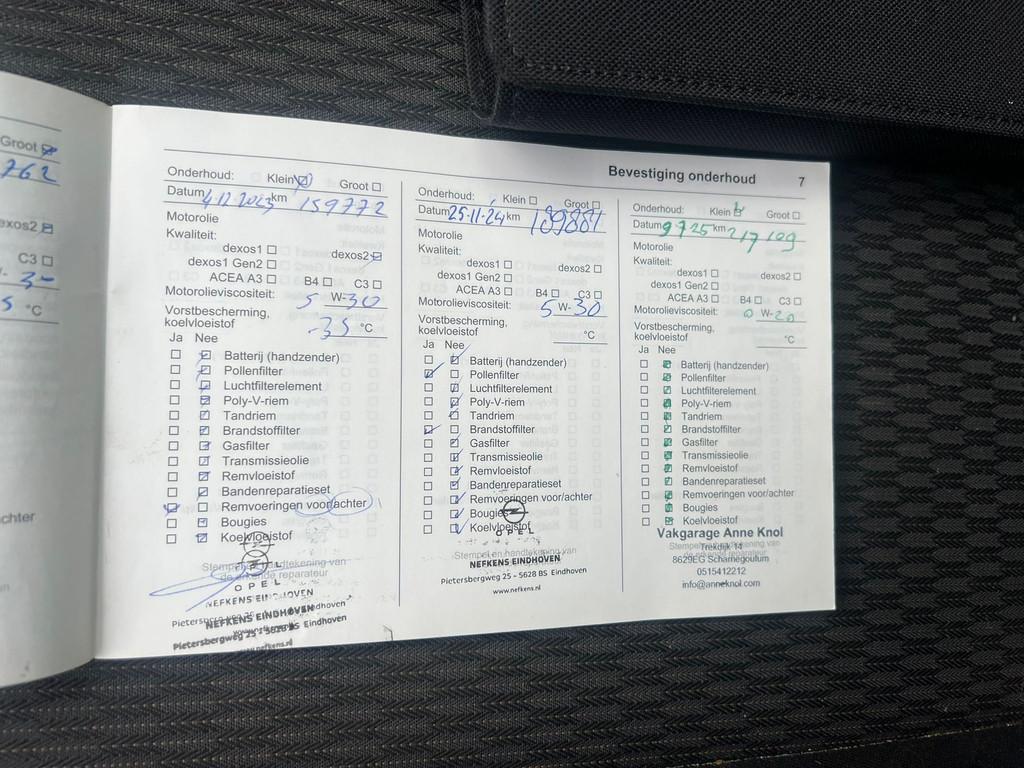 Groot
762
dexos2
C3
W. 30
5 °C
chter
Bevestiging onderhoud 7
Onderhoud: Klein Groot
Datum 4.12.2023 km 159772
Motorolie
Kwaliteit:
dexos1 dexos2
dexos1 Gen2
ACEA A3 B4 C3
Motorolieviscositeit: 5 W-30
Vorstbescherming,
koelvloeistof -35 °C
Ja Nee
Batterij (handzender)
Pollenfilter
Luchtfilterelement
Poly-V-riem
Tandriem
Brandstoffilter
Gasfilter
Transmissieolie
Remvloeistof
Bandenreparatieset
Remvoeringen voor/achter
Bougies
Koelvloeistof
Stempel en handtekening van
de erkende reparateur
OPEL
NEFKENS EINDHOVEN
NEFKENS EINDHOVEN
Pietersbergweg 25 - 5628 BS Eindhoven
www.nefkens.nl
Onderhoud: Klein Groot
Datum 25.11.24 km 189881
Motorolie
Kwaliteit:
dexos1 dexos2
dexos1 Gen2
ACEA A3 B4 C3
Motorolieviscositeit: 5 W-30
Vorstbescherming,
koelvloeistof °C
Ja Nee
Batterij (handzender)
Pollenfilter
Luchtfilterelement
Poly-V-riem
Tandriem
Brandstoffilter
Gasfilter
Transmissieolie
Remvloeistof
Bandenreparatieset
Remvoeringen voor/achter
Bougies
Koelvloeistof
OPEL
Stempel en handtekening van
NEFKENS EINDHOVEN
Pietersbergweg 25 - 5628 BS Eindhoven
www.nefkens.nl
Onderhoud: Klein Groot
Datum 9 7 25 km 217 109
Motorolie
Kwaliteit:
dexos1 dexos2
dexos1 Gen2
ACEA A3 B4 C3
Motorolieviscositeit: 0 W-20
Vorstbescherming,
koelvloeistof °C
Ja Nee
Batterij (handzender)
Pollenfilter
Luchtfilterelement
Poly-V-riem
Tandriem
Brandstoffilter
Gasfilter
Transmissieolie
Remvloeistof
Bandenreparatieset
Remvoeringen voor/achter
Bougies
Koelvloeistof
Vakgarage Anne Knol
Stempel en handtekening van
Trekdijk 14
8629EG Scharnegoutum
0515412212
info@anneknol.com